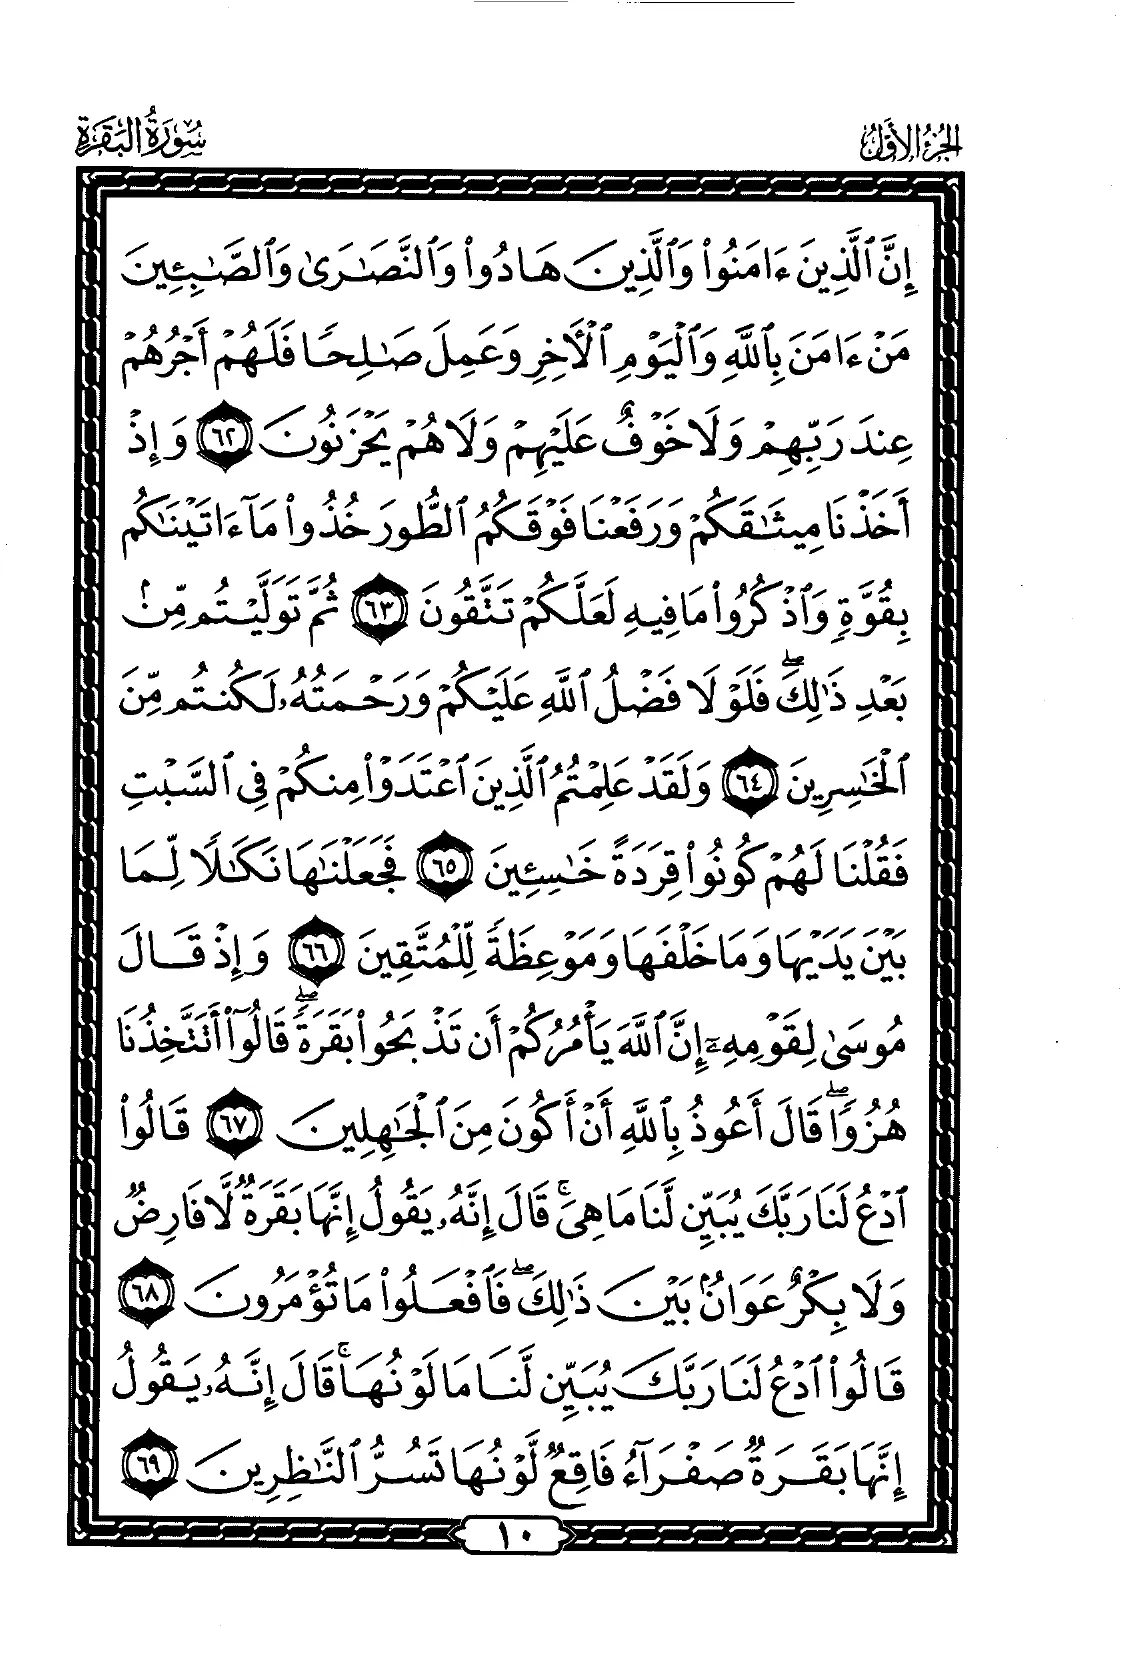 الجزء الأول
سورة البقرة
إِنَّ ٱلَّذِينَ ءَامَنُوا۟ وَٱلَّذِينَ هَادُوا۟ وَٱلنَّصَـٰرَىٰ وَٱلصَّـٰبِـِٔينَ
مَنْ ءَامَنَ بِٱللَّهِ وَٱلْيَوْمِ ٱلْـَٔاخِرِ وَعَمِلَ صَـٰلِحًا فَلَهُمْ أَجْرُهُمْ
عِندَ رَبِّهِمْ وَلَا خَوْفٌ عَلَيْهِمْ وَلَا هُمْ يَحْزَنُونَ ٦٢ وَإِذْ
أَخَذْنَا مِيثَـٰقَكُمْ وَرَفَعْنَا فَوْقَكُمُ ٱلطُّورَ خُذُوا۟ مَآ ءَاتَيْنَـٰكُم
بِقُوَّةٍ وَٱذْكُرُوا۟ مَا فِيهِ لَعَلَّكُمْ تَتَّقُونَ ٦٣ ثُمَّ تَوَلَّيْتُم مِّنۢ
بَعْدِ ذَٰلِكَ ۖ فَلَوْلَا فَضْلُ ٱللَّهِ عَلَيْكُمْ وَرَحْمَتُهُۥ لَكُنتُم مِّنَ
ٱلْخَـٰسِرِينَ ٦٤ وَلَقَدْ عَلِمْتُمُ ٱلَّذِينَ ٱعْتَدَوْا۟ مِنكُمْ فِى ٱلسَّبْتِ
فَقُلْنَا لَهُمْ كُونُوا۟ قِرَدَةً خَـٰسِـِٔينَ ٦٥ فَجَعَلْنَـٰهَا نَكَـٰلًا لِّمَا
بَيْنَ يَدَيْهَا وَمَا خَلْفَهَا وَمَوْعِظَةً لِّلْمُتَّقِينَ ٦٦ وَإِذْ قَالَ
مُوسَىٰ لِقَوْمِهِۦٓ إِنَّ ٱللَّهَ يَأْمُرُكُمْ أَن تَذْبَحُوا۟ بَقَرَةً ۖ قَالُوٓا۟ أَتَتَّخِذُنَا
هُزُوًا ۖ قَالَ أَعُوذُ بِٱللَّهِ أَنْ أَكُونَ مِنَ ٱلْجَـٰهِلِينَ ٦٧ قَالُوا۟
ٱدْعُ لَنَا رَبَّكَ يُبَيِّن لَّنَا مَا هِىَ ۚ قَالَ إِنَّهُۥ يَقُولُ إِنَّهَا بَقَرَةٌ لَّا فَارِضٌ
وَلَا بِكْرٌ عَوَانٌۢ بَيْنَ ذَٰلِكَ ۖ فَٱفْعَلُوا۟ مَا تُؤْمَرُونَ ٦٨
قَالُوا۟ ٱدْعُ لَنَا رَبَّكَ يُبَيِّن لَّنَا مَا لَوْنُهَا ۚ قَالَ إِنَّهُۥ يَقُولُ
إِنَّهَا بَقَرَةٌ صَفْرَآءُ فَاقِعٌ لَّوْنُهَا تَسُرُّ ٱلنَّـٰظِرِينَ ٦٩
١٠